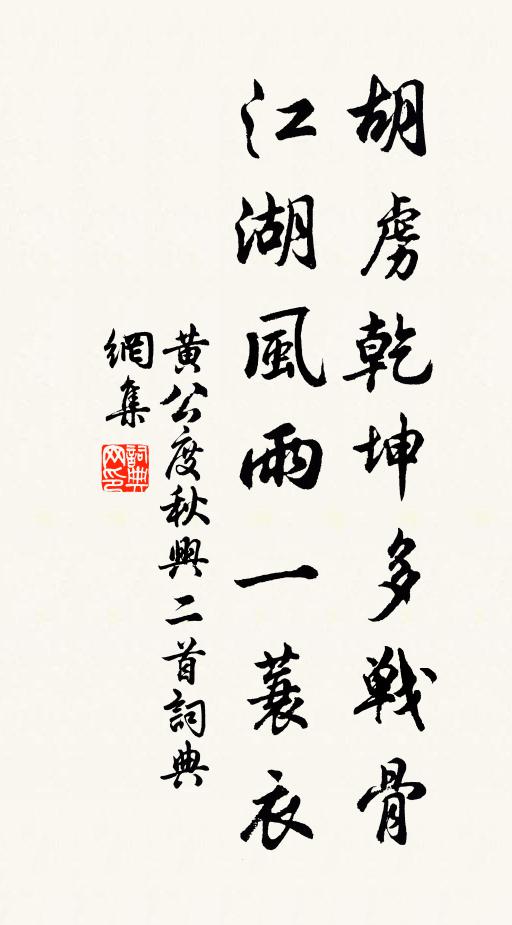 胡虜乾坤多戰骨
江湖風雨一蓑衣
黃公度秋興二首詞典
網集
詞典
网印